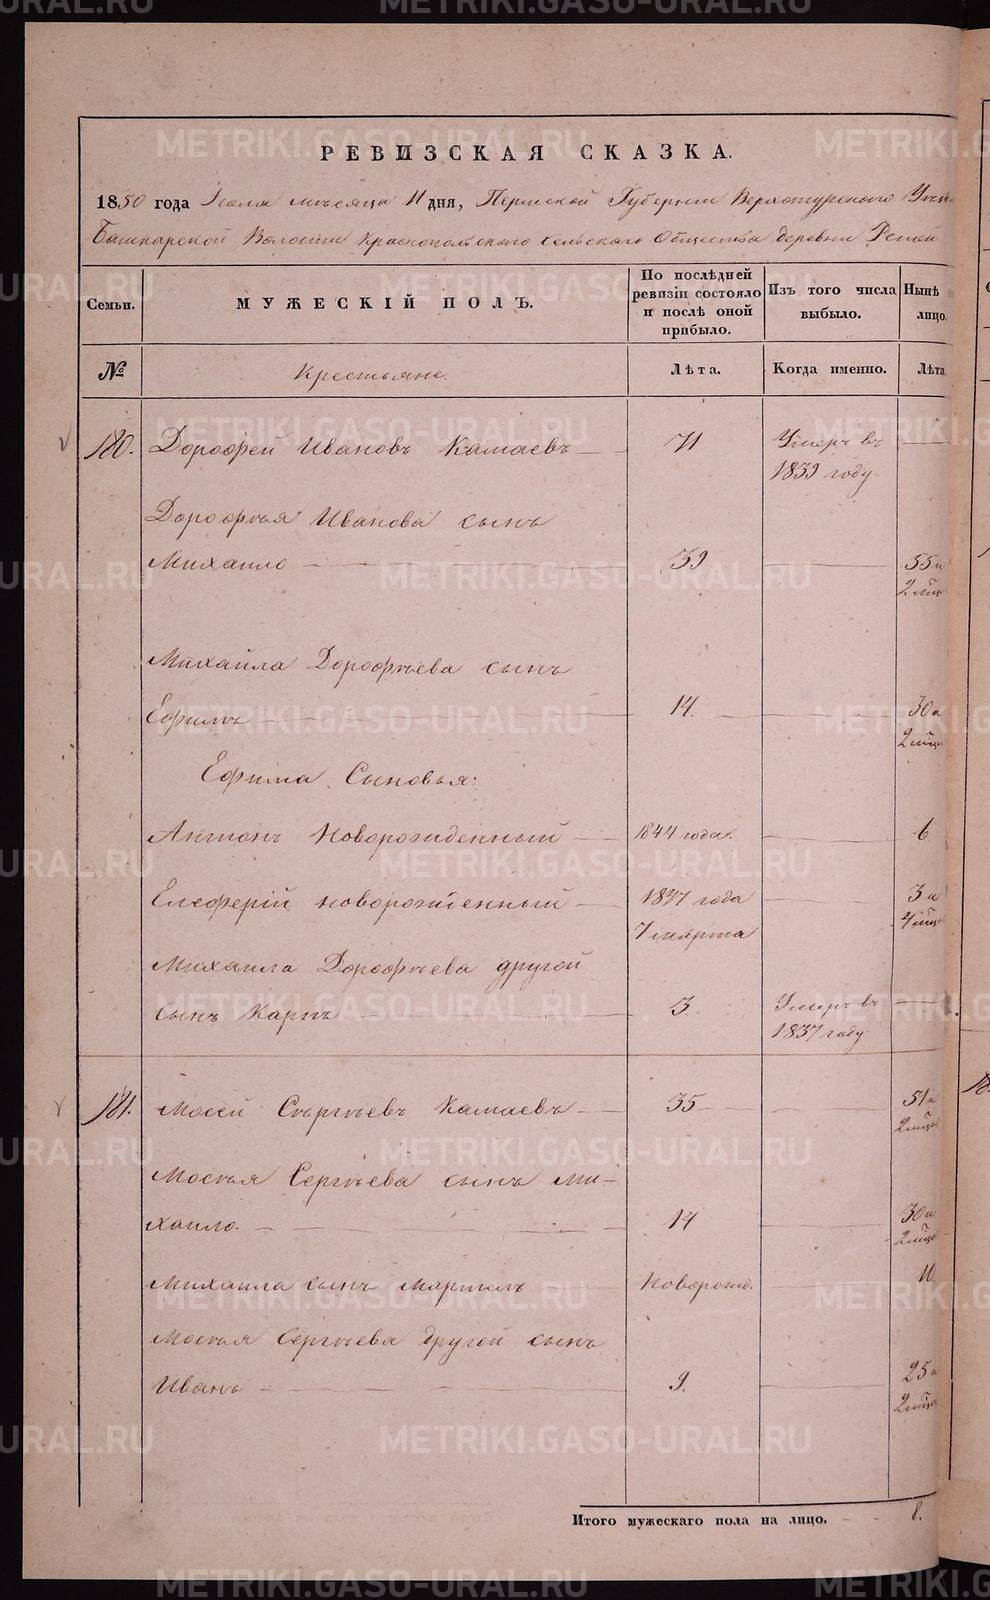 РЕВИЗСКАЯ СКАЗКА.
1850 года Іюля мѣсяца 11 дня, Пермской Губерніи Верхотурскаго Уѣзда
Башкарской Волости Краснопольскаго сельскаго Общества деревни
Семьи.
МУЖЕСКІЙ ПОЛЪ.
По послѣдней ревизіи состояло и послѣ оной прибыло.
Изъ того числа выбыло.
Нынѣ
лицо.
№
Крестьяне.
Лѣта.
Когда именно.
Лѣта
180. Дорофей Ивановъ Камаевъ — 71 Умеръ въ —
1839 году
Дорофѣя Иванова сынъ
Михаило — 39 — 55 и
2 мѣц
Михаила Дорофѣева сынъ
Ефимъ — 14. — 30 и
2 мѣц
Ефима Сыновья:
Антонъ Новорожденный — 1844 года. — 6
Елеферій новорожденный — 1847 года — 3 и
7 марта 4 мѣц
Михаила Дорофѣева другой
сынъ Карпъ — 3. Умеръ въ —
1837 году
181. Мосей Сергѣевъ Камаевъ — 35 — 51 и
2 мѣц
Мосѣя Сергѣева сынъ Ми-
хаило. — 14 — 30 и
2 мѣц
Михаила сынъ Мартелъ Новорожд. — 10.
Мосѣя Сергѣева другой сынъ
Иванъ — 9. — 25 и
2 мѣц
Итого мужескаго пола на лицо. — 8.
METRIKI.GASO-URAL.RU